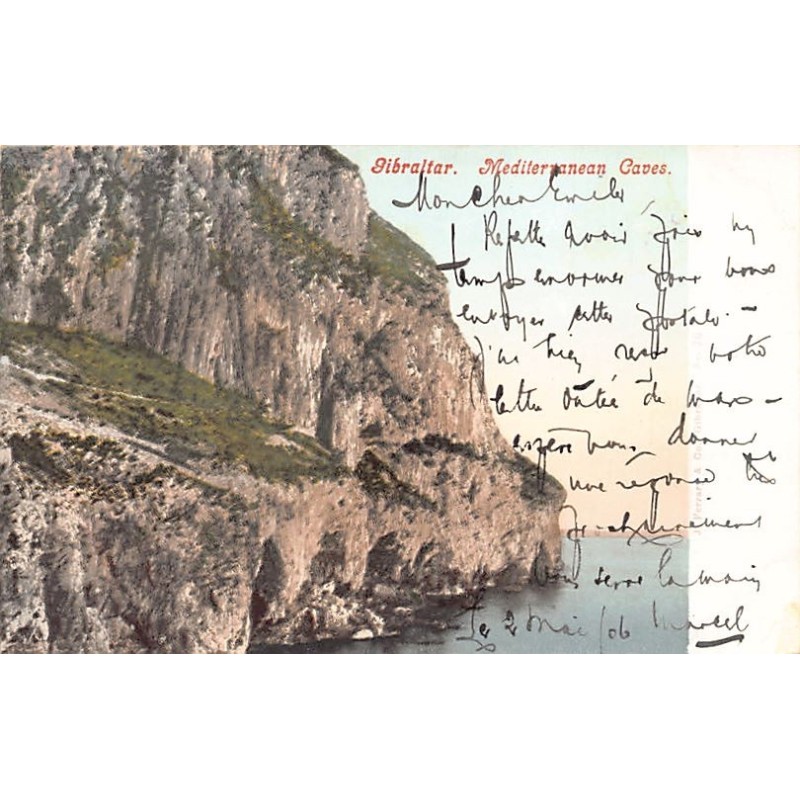 Gibraltar. Mediterranean Caves.
Mon cher Emile,
Regrette avoir pris un
temps enorme pour vous
envoyer cette postale. -
J'ai hier reçu votre
lettre datée de mars -
espère vous donner
une réponse très
prochainement
Vous serre la main
2 Mai / 06 Marcel
J. Ferrary &